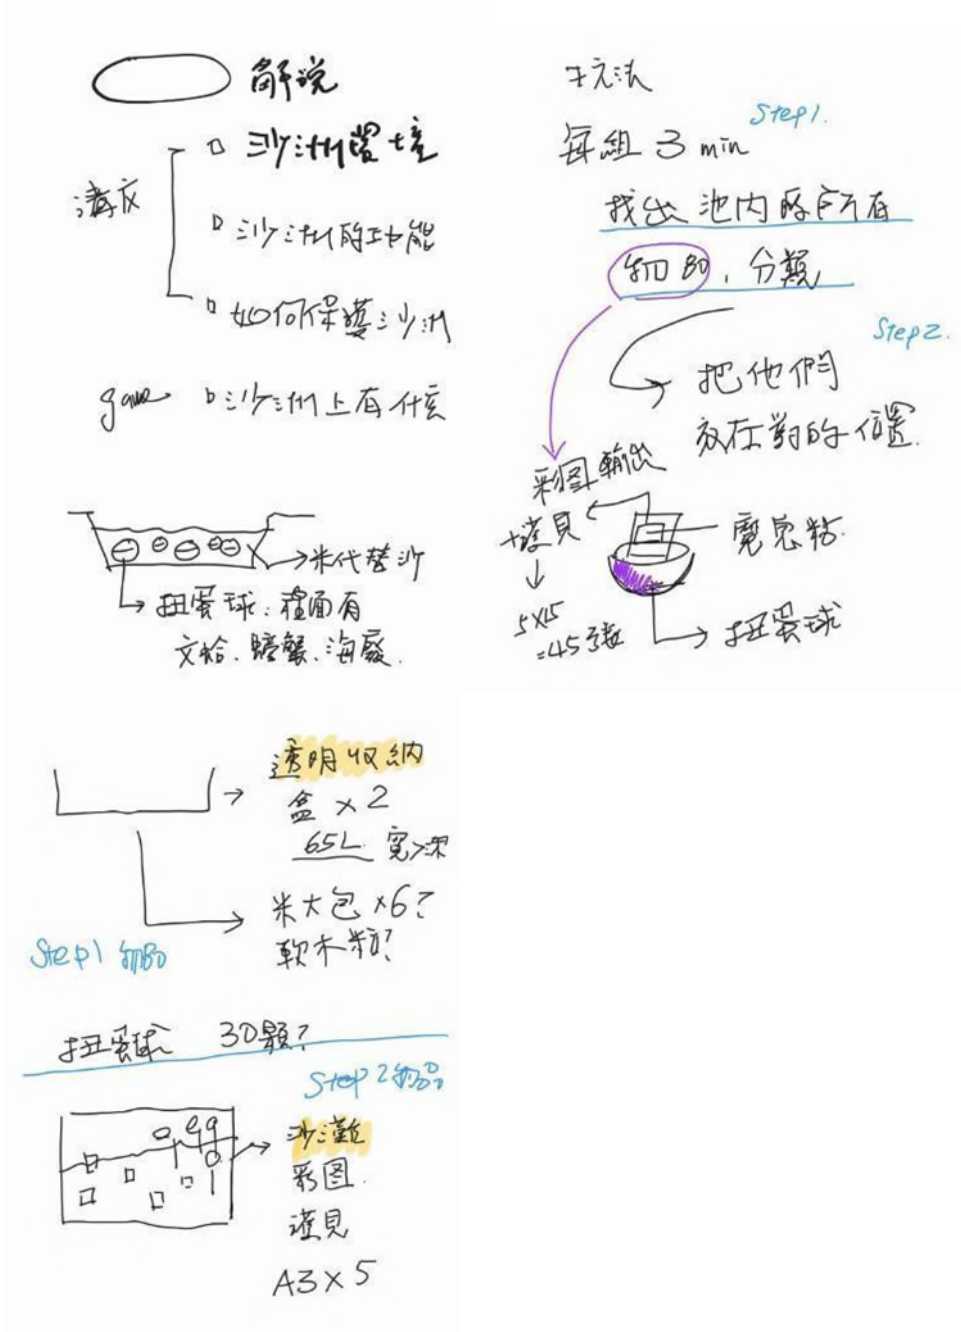 解說
沙洲環境
演成
沙洲的功能
如何保護沙洲
game 沙洲上有什玄
米代替沙
扭蛋球:裡面有
文蛤、螃蟹、海廢.
玩法
Step1.
每組 3 min
找出池內的所有
物品,分類
Step2.
把他們
放在對的位置.
彩图輸出
+護貝
5X15
=45張
魔鬼粘.
扭蛋球
透明收納
盒 x 2
65L 寬>深
米大包 x6?
軟木粒?
Step1 物品
扭蛋球 30顆?
Step 2 物品
沙灘
彩图.
護貝
A3 x 5